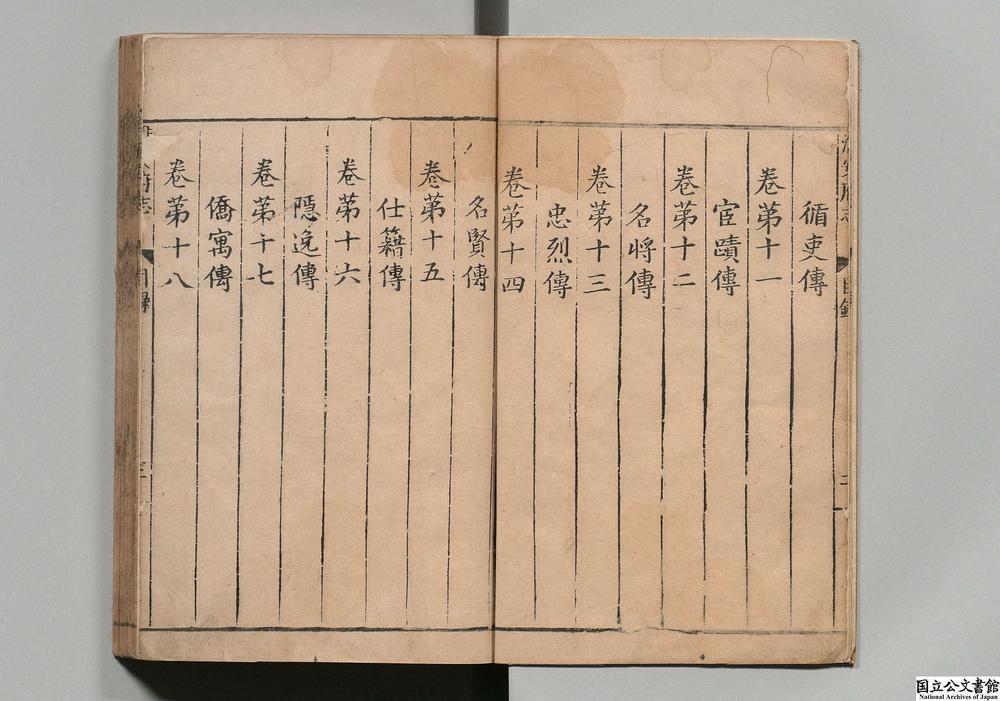 循吏傳
卷第十一
宦蹟傳
卷第十二
名將傳
卷第十三
忠烈傳
卷第十四
名賢傳
卷第十五
仕籍傳
卷第十六
隱逸傳
卷第十七
僑寓傳
卷第十八
府志
目錄
二
目錄
三
国立公文書館
National Archives of Japan